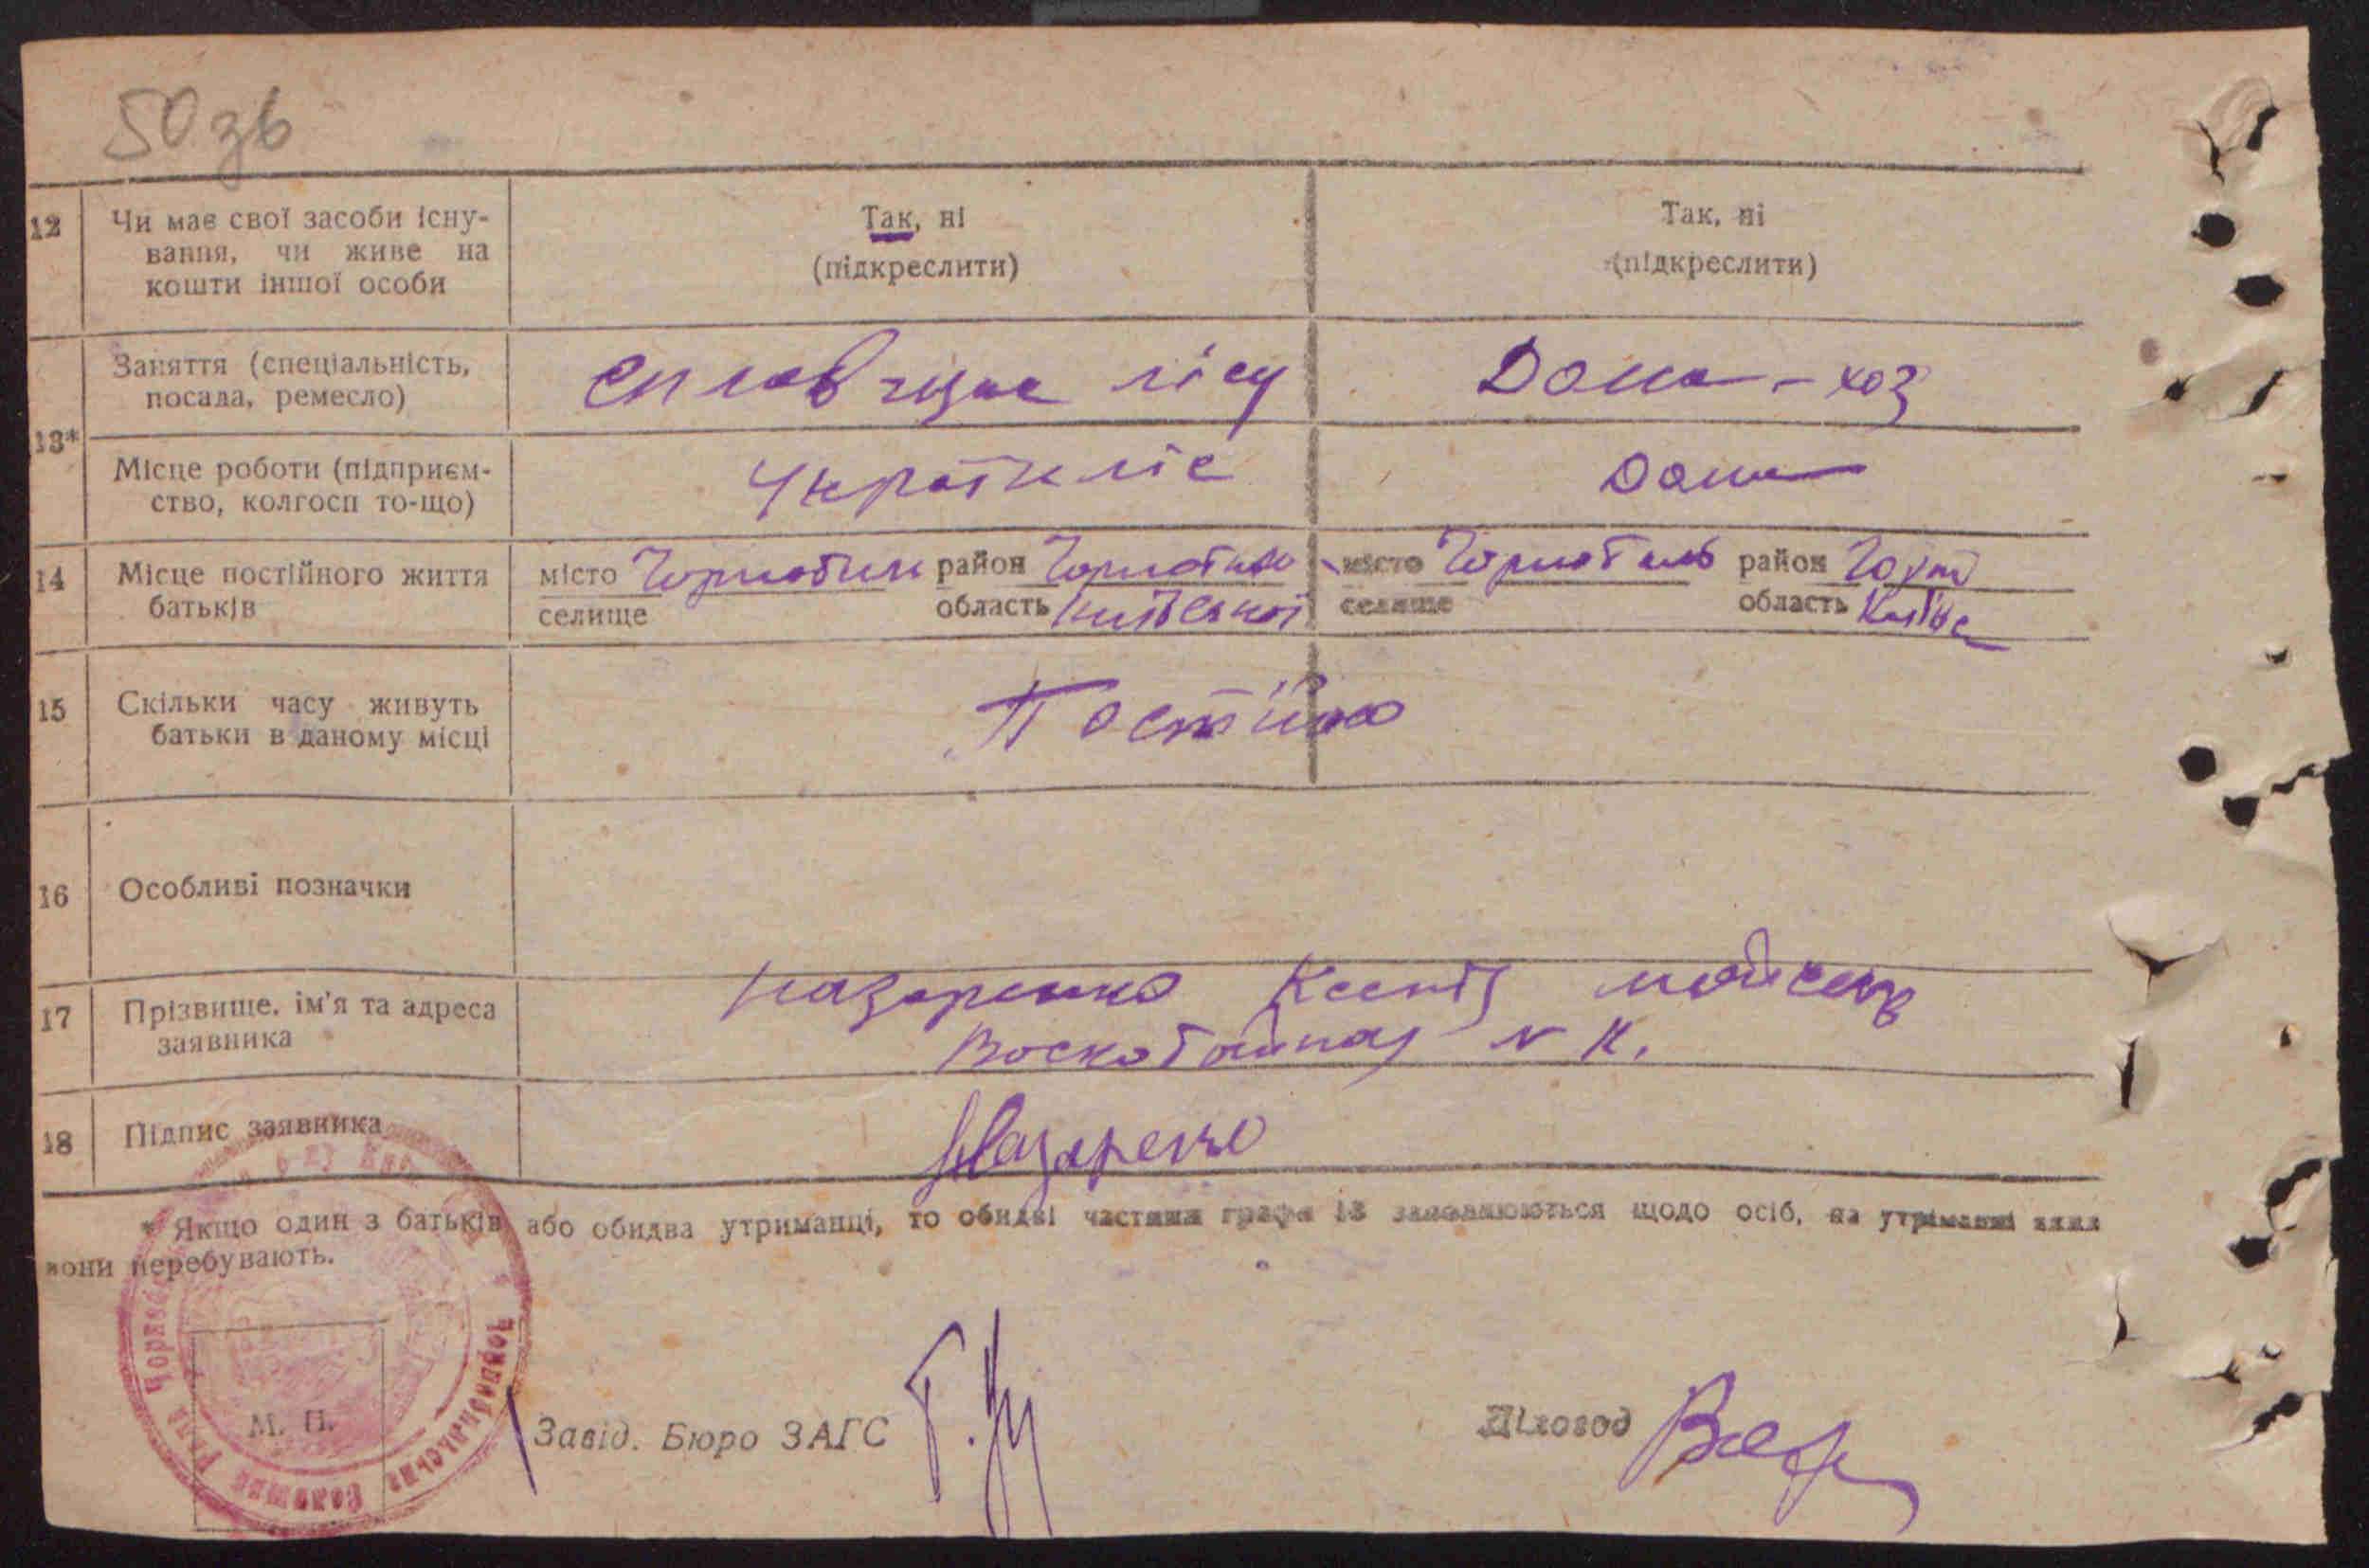 50 зв
12 Чи має свої засоби існу- Так, ні Так, ні
вання, чи живе на (підкреслити) (підкреслити)
кошти іншої особи
Заняття (спеціальність, Сплавчик лісу Дома-хоз
посада, ремесло)
13*
Місце роботи (підприєм- Українліс Дома
ство, колгосп то-що)
14 Місце постійного життя місто Чорнобиль район Чорнобиль місто Чорнобиль район Чорн
батьків селище область Київської селище область Київс
15 Скільки часу живуть Постійно
батьки в даному місці
16 Особливі позначки
17 Прізвище, ім'я та адреса Назаренко Ксенія
заявника
18 Підпис заявника Назаренко
* Якщо один з батьків або обидва утриманці, то обидві частини графи 13 заповнюються щодо осіб, на утриманні яких
вони перебувають.
М. П.
Завід. Бюро ЗАГС Діловод